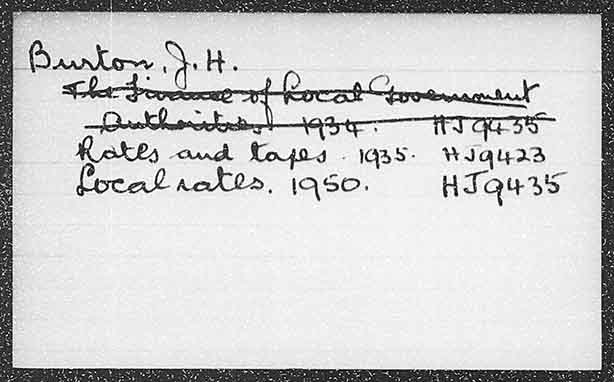 Burton, J.H.
The Finance of Local Government
Authorities 1934. HJ9435
Rates and taxes. 1935. HJ9423
Local rates. 1950. HJ9435